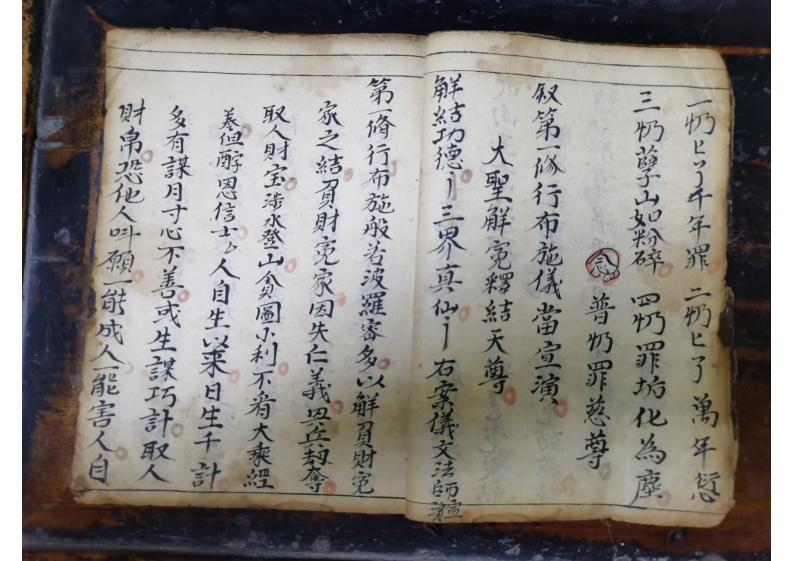 一忉匕了千年罪 二忉匕了萬年愆
三忉孽山如粉碎 四忉罪垢化為塵
念 普忉罪慈尊
叙第一條行布施儀當宣演
大聖解寃釋結天尊
解結功德 三界真仙 右案儀文法師宣
第一條行布施般若波羅密多以解負財寃
家之結負財寃家因失仁義 兵刼奪
取人財宝涉水登山貪圖小利不看大乘經
卷但酧恩信士厶人自生以来日生千計
多有謀月寸心不善或生謀巧計取人
財帛恐他人呌願一能成人一能害人自